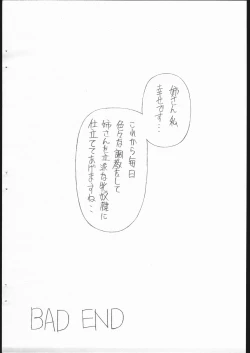 姉さん私
幸せです…
これから毎日
色々な調教をして
姉さんを立派な雌奴隷に
仕立ててあげますね…
BAD END